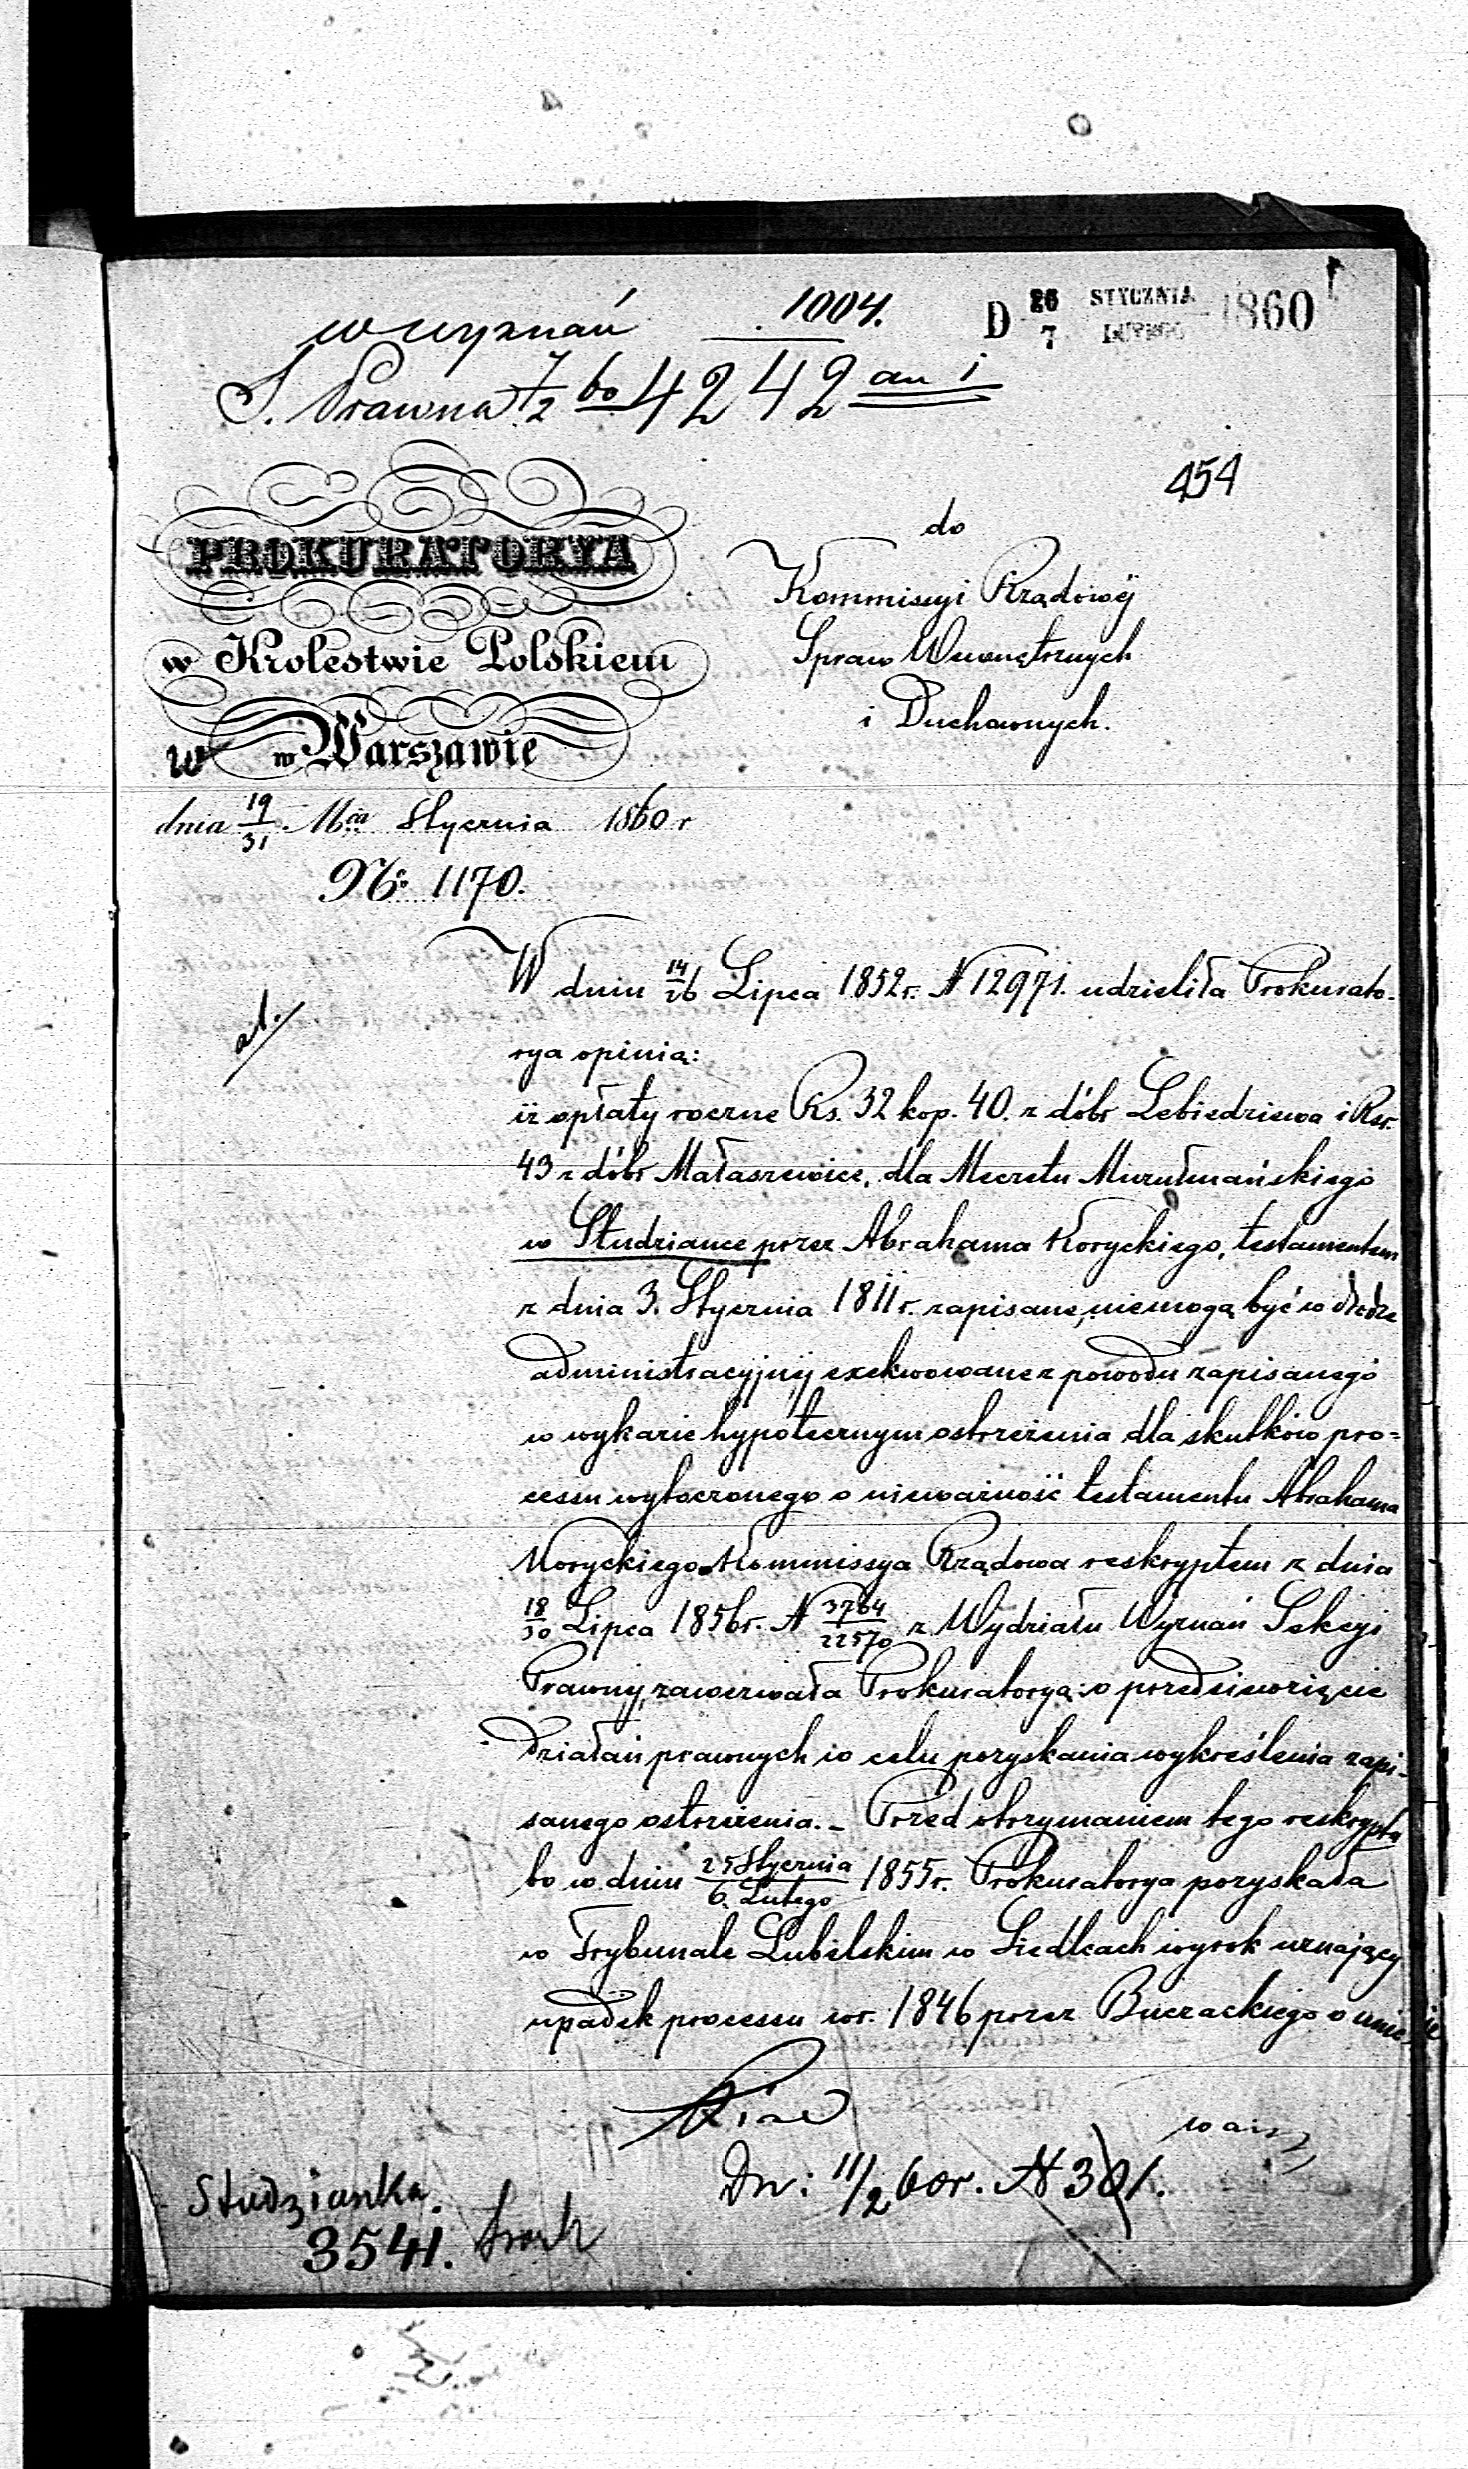 w wyznań 1004.
D 26 STYCZNIA 1860
7 LUTEGO
S. Prawna 7/2 60 4242
454
PROKURATORYA
w Krolestwie Polskiem
w Warszawie
dnia 19/31 Mca Stycznia 1860 r
No 1170.
do
Kommissyi Rządowéj
Spraw Wewnętrznych
i Duchownych.
W dniu 14/26 Lipca 1852 r. N 12971. udzieliła Prokurato-
rya opinią:
iż opłaty roczne Rs. 32 kop. 40. z dóbr Lebiedziewa i Rsr.
43 z dóbr Małaszewice, dla Meczetu Muzułmańskiego
w Studziance przez Abrahama Koryckiego, testamentem
z dnia 3. Stycznia 1811 r. zapisane, niemogą być w drodze
administracyjnéj exekwowane z powodu zapisanego
w wykazie hypotecznym ostrzeżenia dla skutków pro=
cessu wytoczonego o nieważność testamentu Abrahama
Koryckiego. Kommissya Rządowa reskryptem z dnia
18/30 Lipca 1856 r. N 3764/22570 z Wydziału Wyznań Sekcyi
Prawnéj, zawezwała Prokuratoryą o przedsięwzięcie
działań prawnych w celu pozyskania wykreślenia zapi-
sanego ostrzeżenia. – Przed otrzymaniem tego reskryptu
bo w dniu 25 Stycznia/6. Lutego 1855 r. Prokuratorya pozyskała
w Trybunale Lubelskim w Siedlcach wyrok uznający
upadek processu w r. 1846 przez Buczackiego o unie-
Dn: 11/2 60 r. N 301.
Studzianka.
3541.